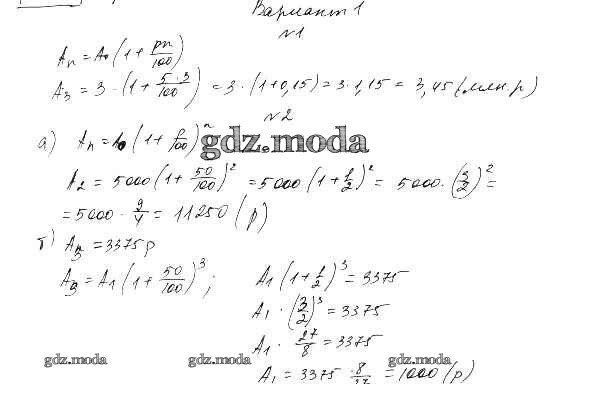 Вариант 1
№1
Aₙ = A₀(1 + pn/100)
A₃ = 3·(1 + 5·3/100) = 3·(1+0,15) = 3·1,15 = 3,45 (млн.р)
№2
а) Aₙ = A₀(1 + p/100)ⁿ
gdz.moda
A₂ = 5000(1 + 50/100)² = 5000(1 + 1/2)² = 5000·(3/2)² =
= 5000 · 9/4 = 11250 (р)
б) A₃ = 3375р
A₃ = A₁(1 + 50/100)³; A₁(1 + 1/2)³ = 3375
A₁·(3/2)³ = 3375
A₁ · 27/8 = 3375
gdz.moda gdz.moda gdz.moda
A₁ = 3375 · 8/27 = 1000 (р)